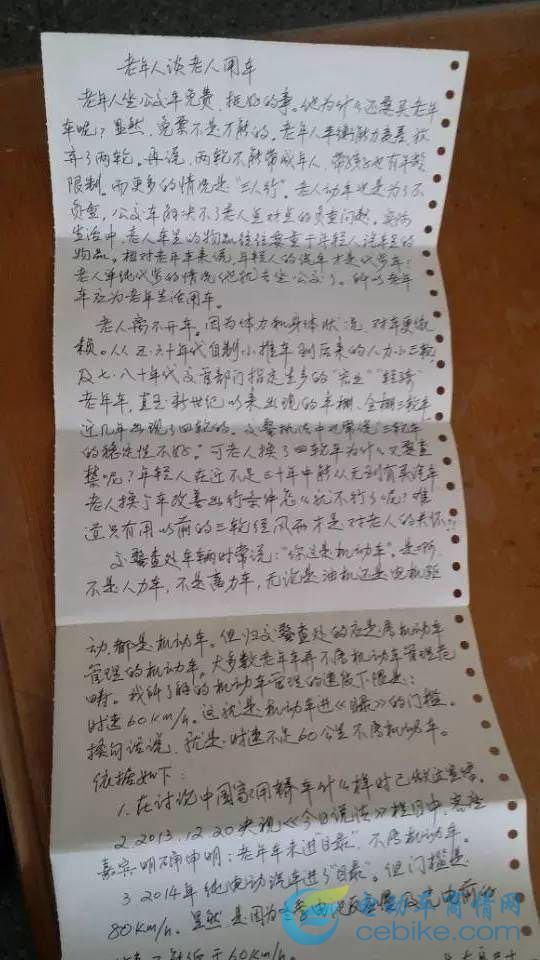 老年人谈老人用车
老年人坐公交车免费,挺好的事。他为什么还要买老年
车呢?显然,免票不是万能的。老年人平衡能力较差,放
弃了两轮。再说,两轮不能带成年人,带孩子也有年龄
限制。而更多的情况是“三人行”。老人动车也是为了不
负重,公交车解决不了老人点对点的负重问题。实际
生活中,老人车上的物品往往要重于年轻人汽车上的
物品。相对老年车来说,年轻人的汽车才是代步车;
老人单纯代步的情况他就去坐公交了。所以老年
车应为老年生活用车。
老人离不开车。因为体力和身体状况,对车更依
赖。从五·六十年代自制小推车到后来的人力小三轮
及七·八十年代交管部门指定生产的
老年车,直至新世纪以来出现的半棚、全棚三轮车,
近几年出现了四轮的。交警执法中也常说“三轮车
的稳定性不好。”可老人换了四轮车为什么又要查
禁呢?年轻人在近不足三十年中能从无到有买汽车
老人换个车改善出行条件怎么就不行了呢?难
道只有用以前的三轮经风雨才是对老人的关怀!!
交警查处车辆时常说:“你这是机动车”。是啊,
不是人力车,不是畜力车,无论是油机还是电机驱
动,都是机动车。但归交警查处的应是属机动车
管理的机动车。大多数老年车并不属机动车管理范
畴。我所了解的机动车管理的速度下限是:
时速60km/h。这就是机动车进《目录》的门槛。
换句话说,就是时速不足60公里不属机动车。
依据如下:
1. 在讨论中国家用轿车什么样时已
2. 2013.12.20央视《今日说法》栏目中,
嘉宾明确申明:老年车未进“目录”,不属机动车。
3 2014年纯电动汽车进了“目录”。但门槛是
80km/h。显然是因为考虑
60km/h。
电动车商情网
cebike.com